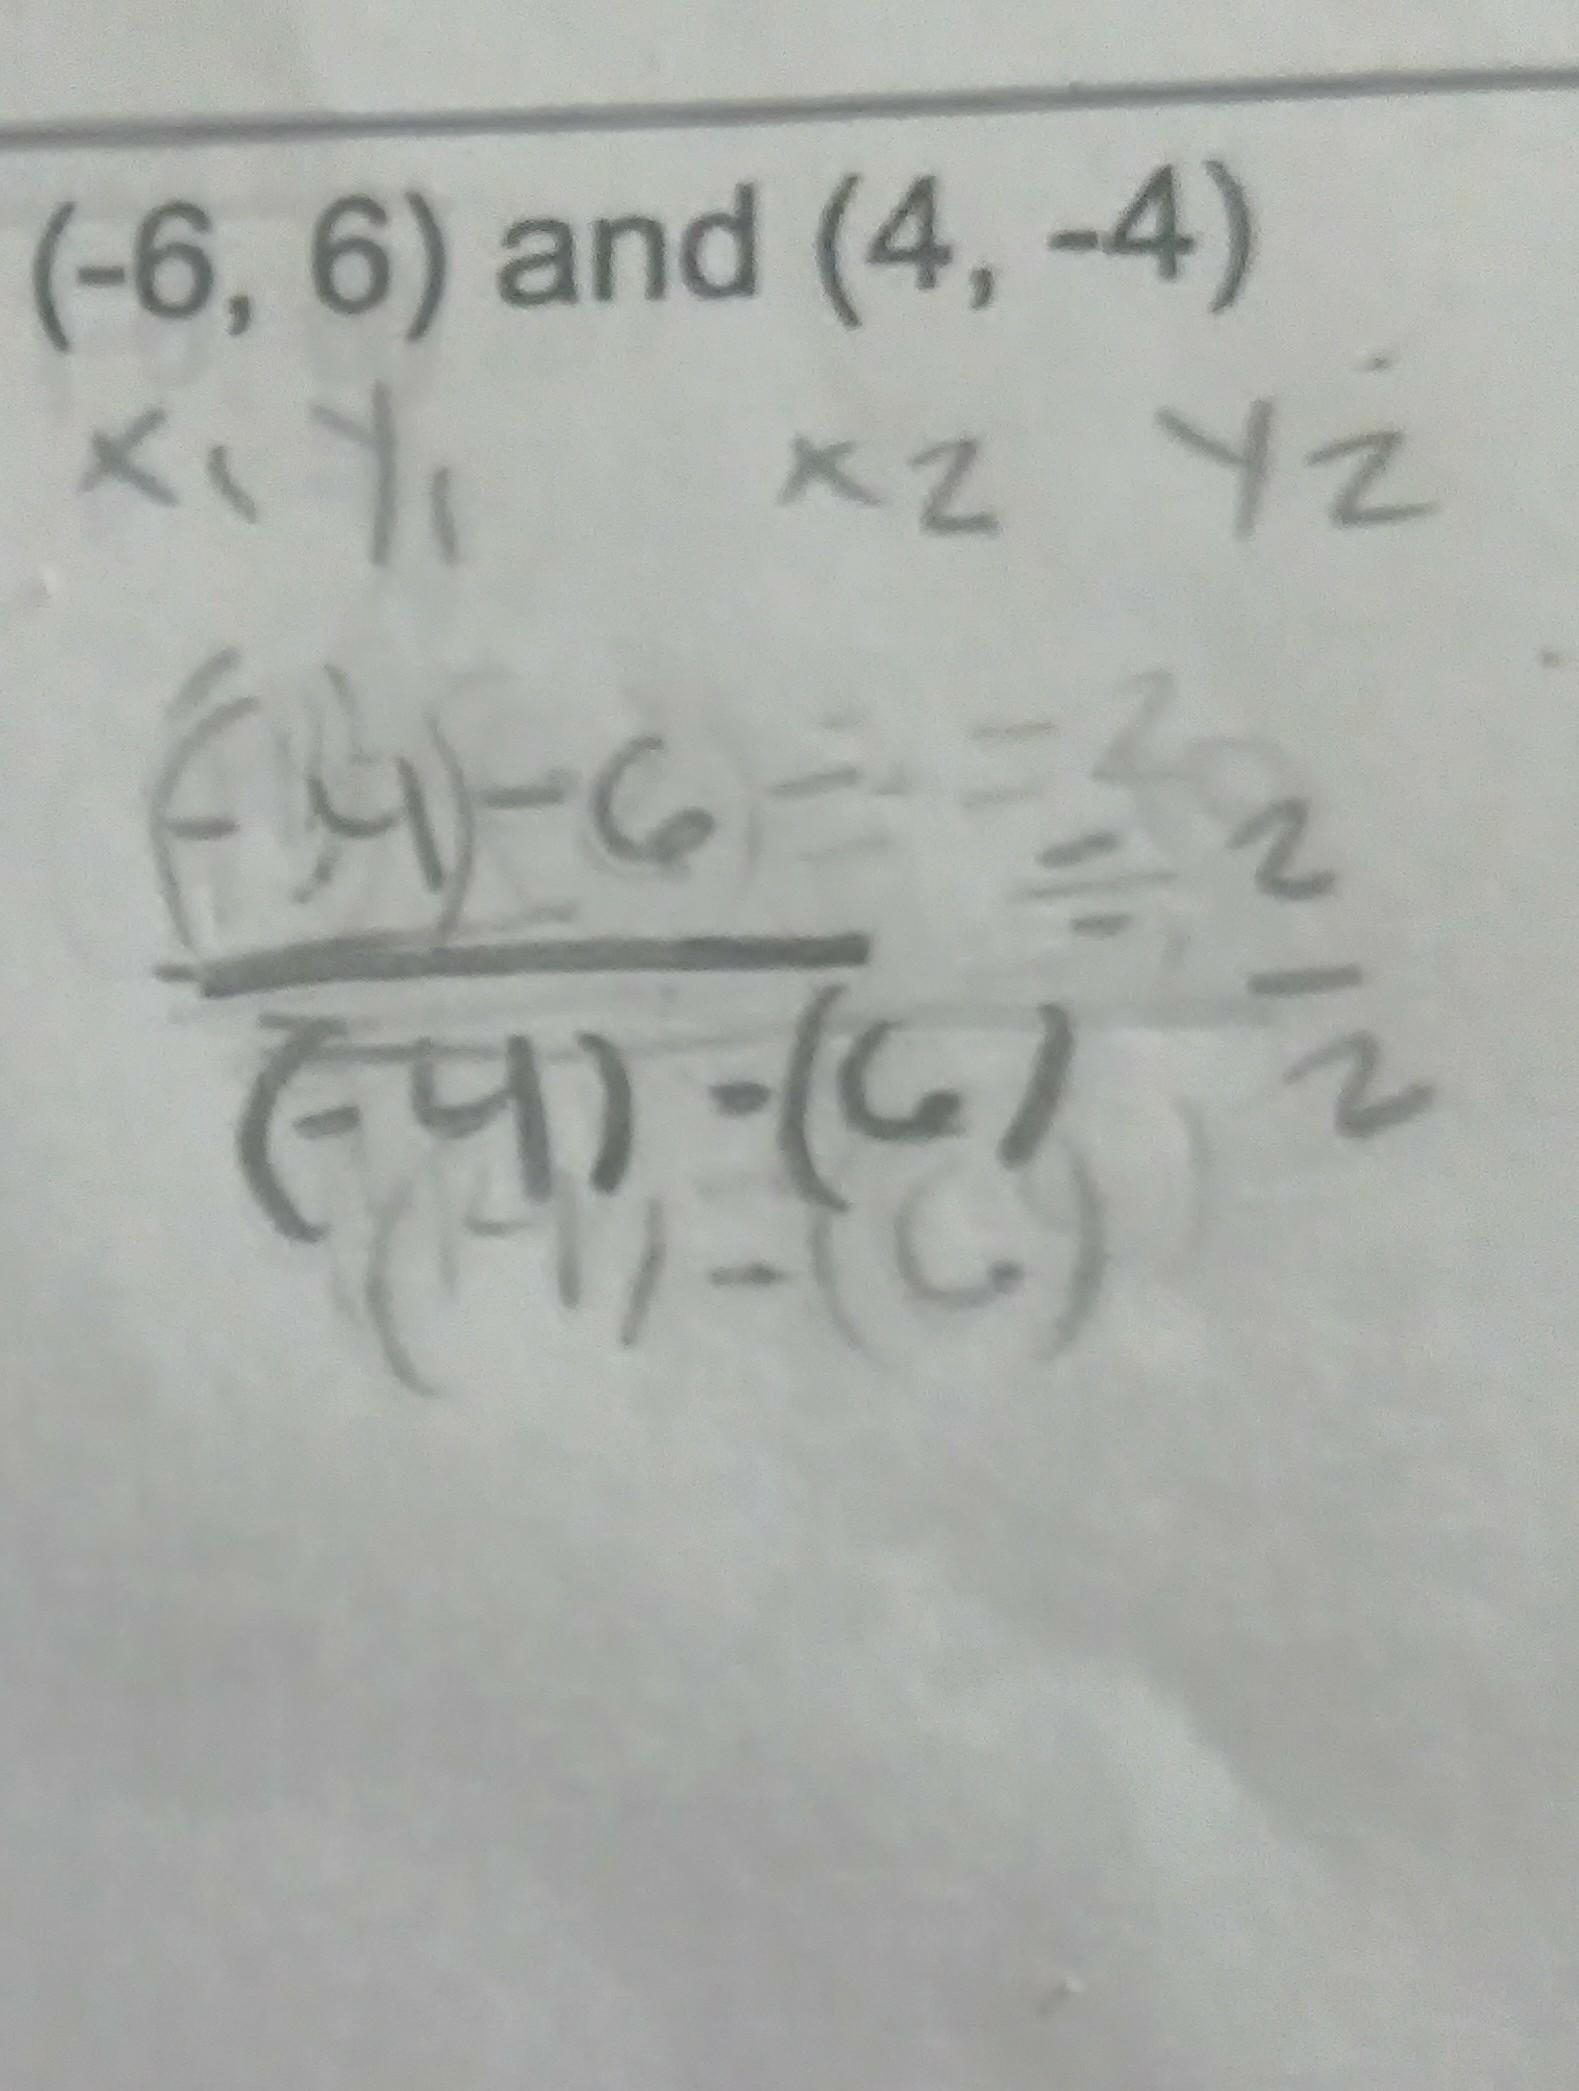 (-6, 6) and (4, -4)
x1 y1 x2 y2
(-4)-6 = 2
(-4) -(6) 2
(4) -(6)